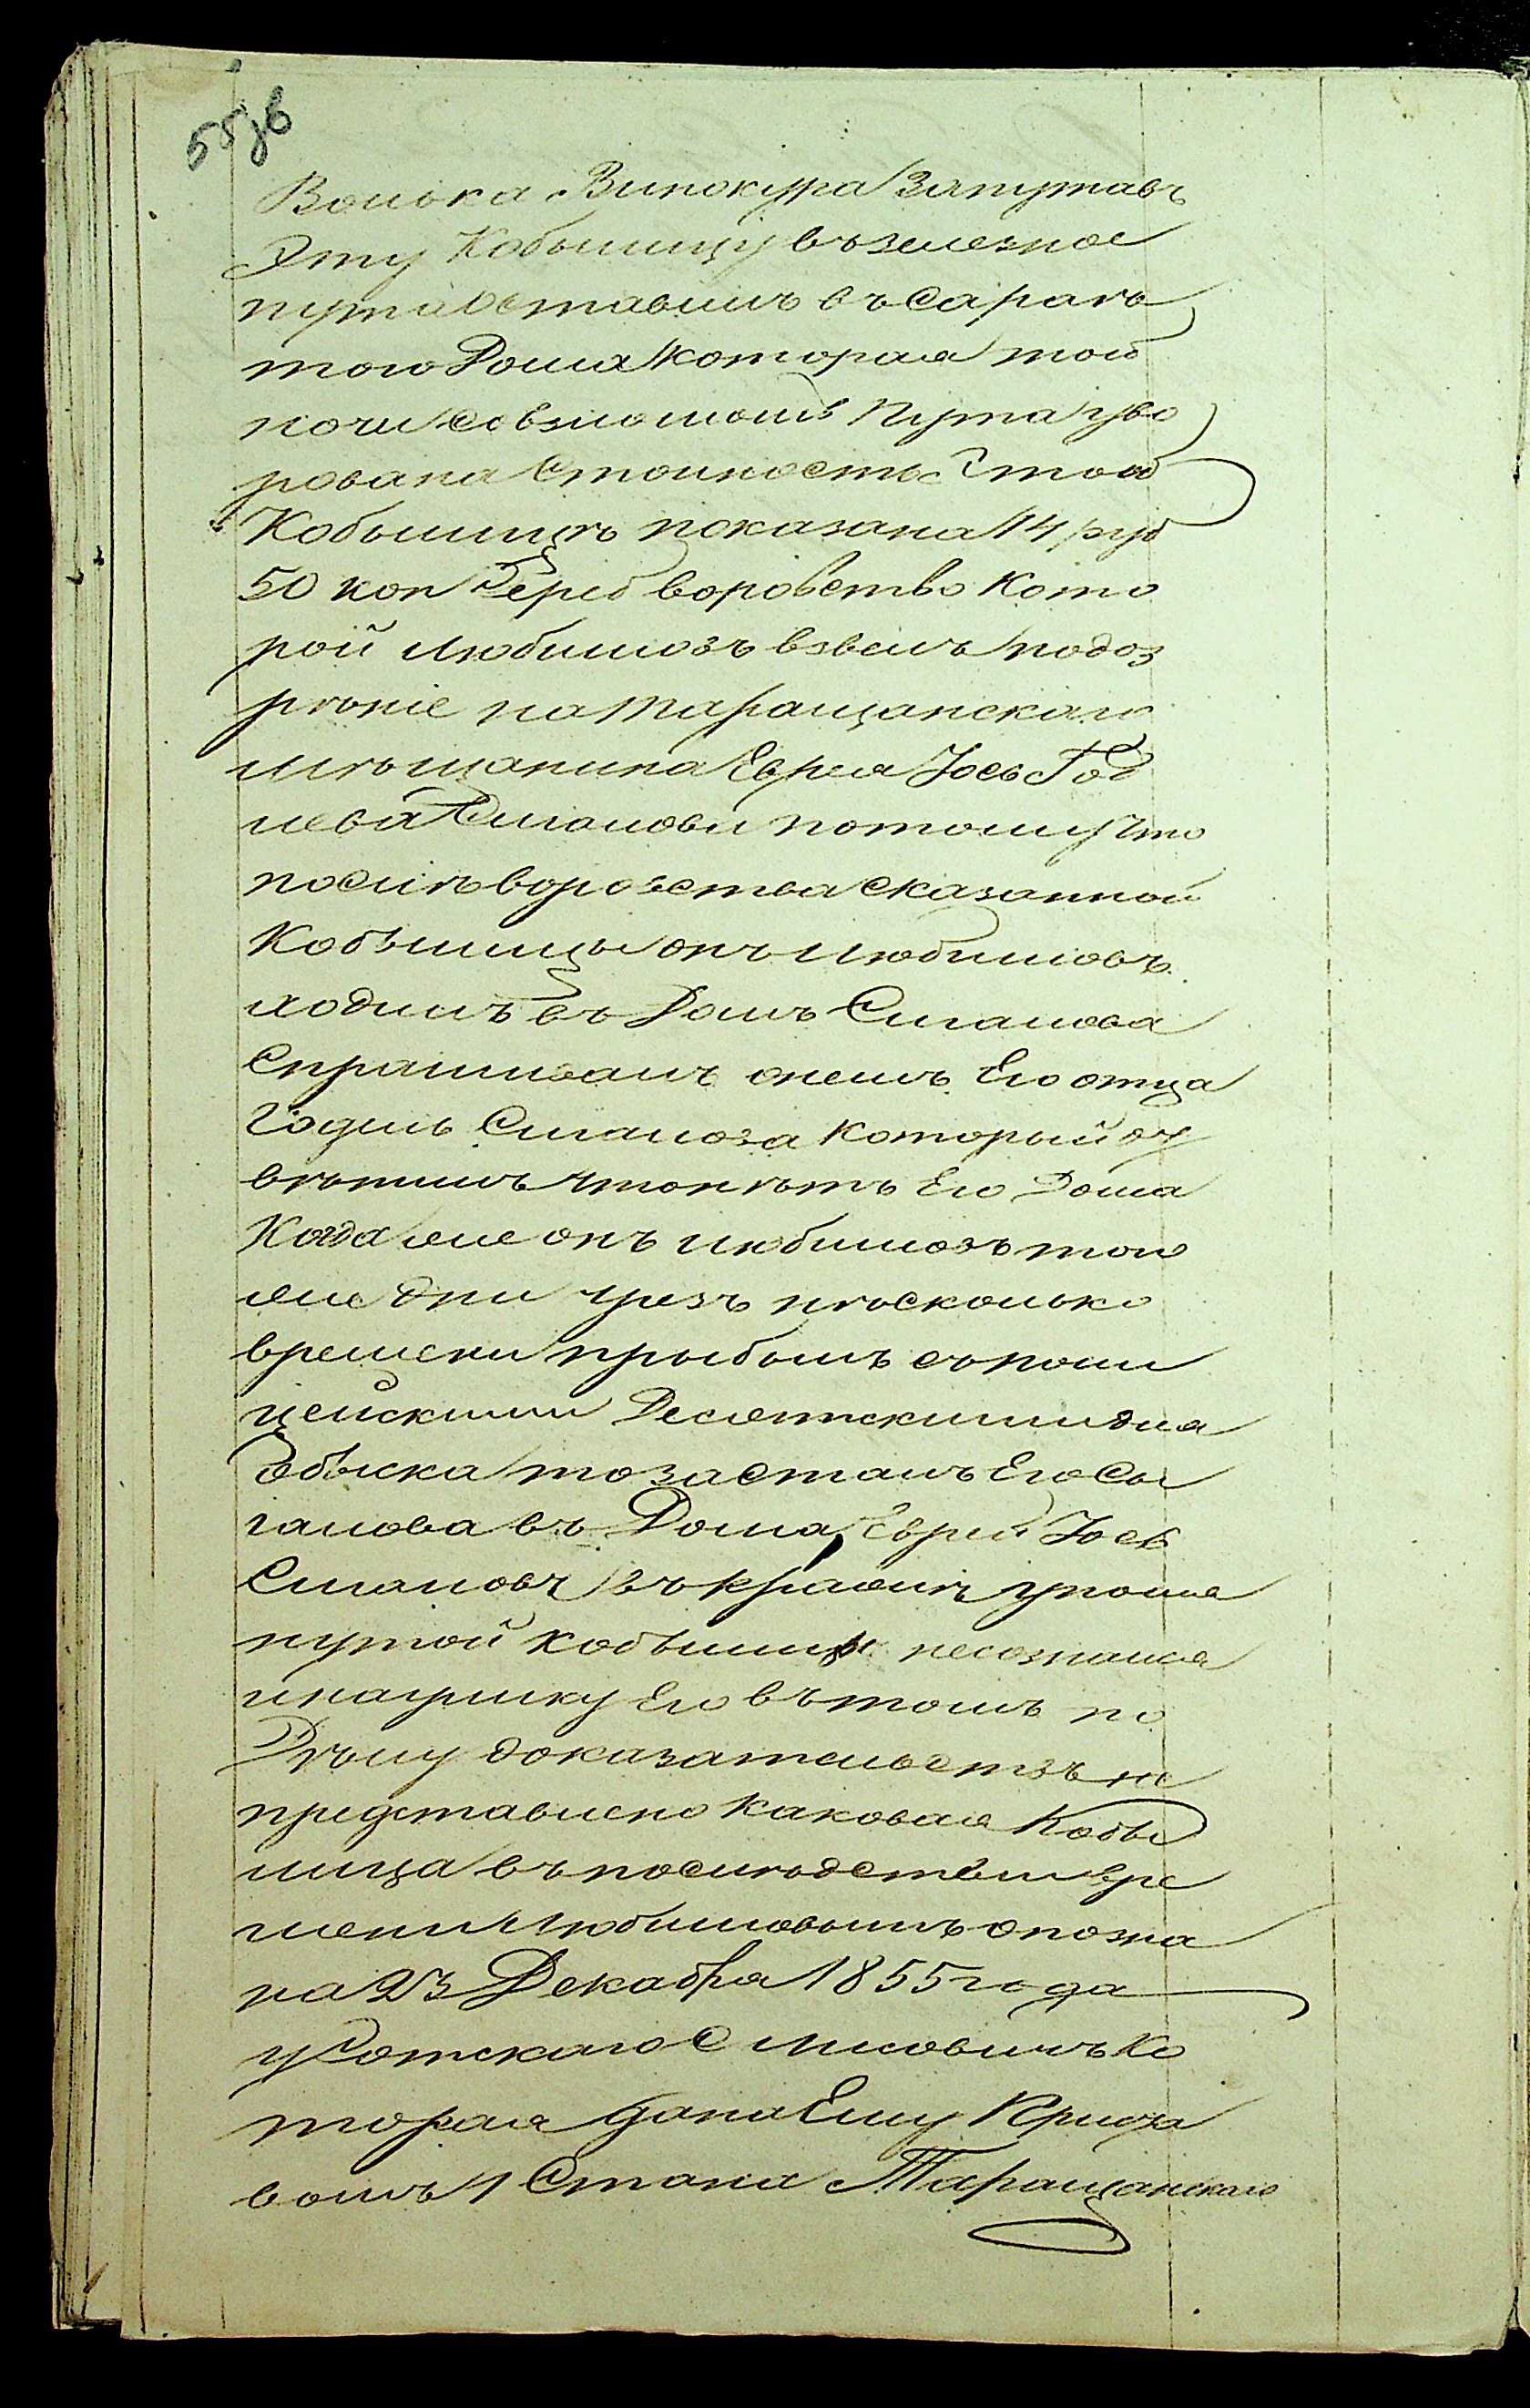 55 зв
Волька Винокура Запутавъ
Эту Кобылицу въ зелезное
пута оставилъ въ Сараѣ
того Дома которая той
ночи совзломомъ Пута уво
рована Стоимость Этой
Кобылицѣ показана 14 руб
50 коп Серед воровство Кото
рой Любимовъ взвелъ подоз
рѣніе на Таращанскаго
мѣщанина Еврея Іось Год
лева Сиганова потому что
послѣ воровства Сказанной
Кобылицы онъ Любимовъ
ходилъ въ Домъ Сиганова
Спрашивалъ онемъ Его отца
Годель Сиганова который от
вѣтилъ что нѣтъ Его Дома
Когда же онъ Любимовъ того
же дни чрезъ нѣсколько
времени прыбылъ съ поли
цейскими Десятскими для
обыска то засталъ Его Сы
ганова въ Дома, Еврей Іось
Сигановъ въ кражѣ упомя
нутой кобылицы несознался
и наулику Его въ томъ по
Дѣлу доказательствъ не
представлено каковая Кобы
лица въ послѣдствіи вре
мени Любимовымъ опозна
на 23 Декабря 1855 года
у Сотскаго С Лисовичъ Ко
торая дана Ему Приста
вомъ 1 Стана Таращанскаго